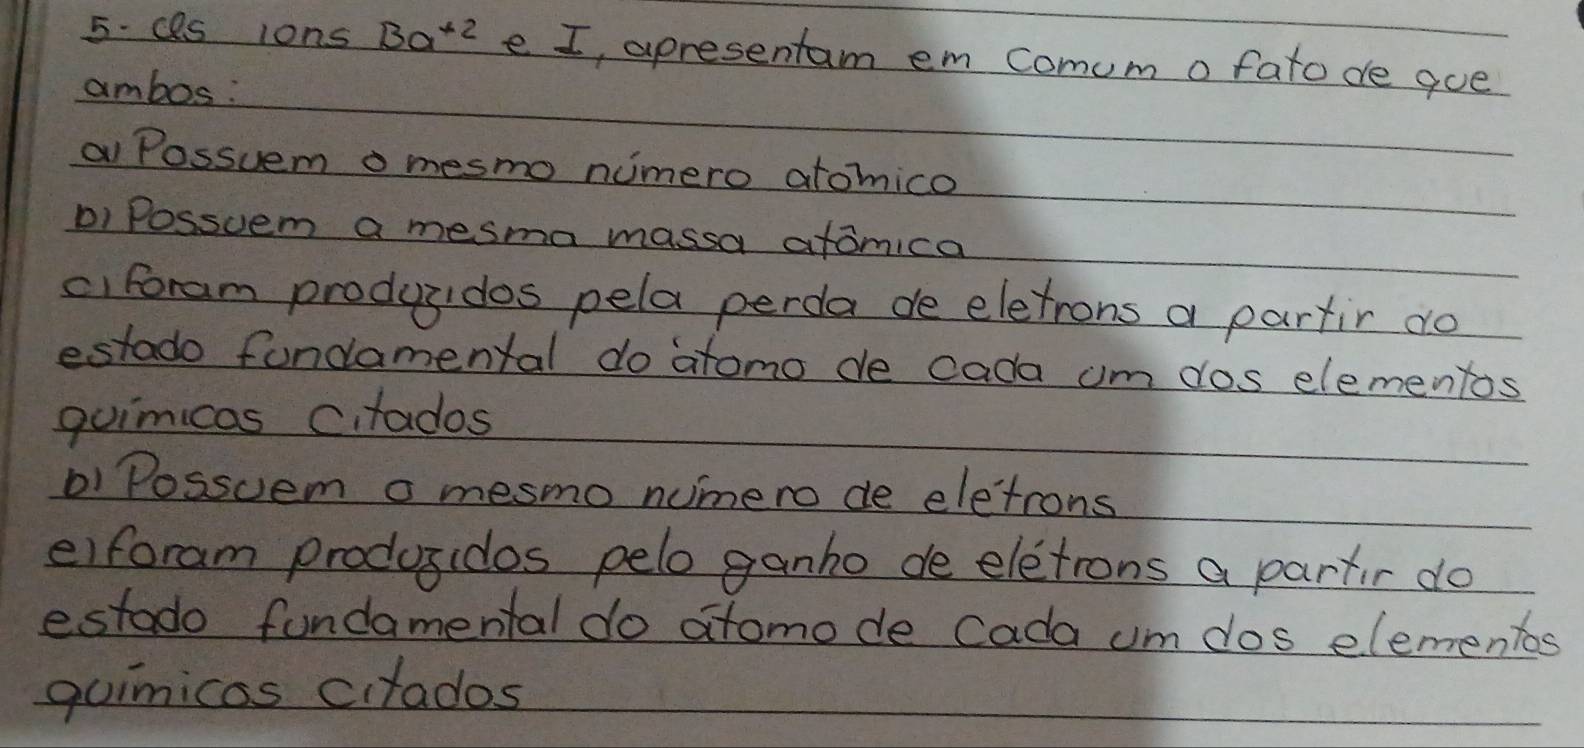 5. Os ions Ba+2 e I, apresentam em comum o fato de que
ambos:
a) Possuem o mesmo número atômico
b) Possuem a mesma massa atômica
c) foram produzidos pela perda de eletrons a partir do
estado fundamental do átomo de cada um dos elementos
quimicos citados
D) Possuem o mesmo número de elétrons
e) foram produzidos pelo ganho de elétrons a partir do
estado fundamental do átomo de cada um dos elementos
químicos citados